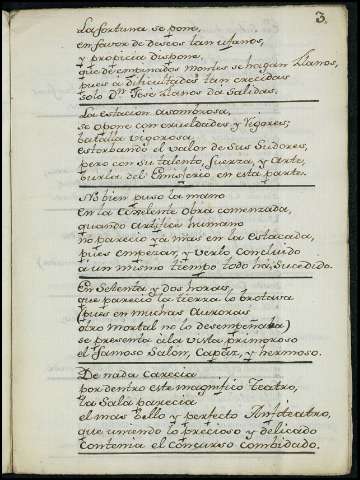 3.
La fortuna se pone,
en favor de deseos tan ufanos,
y propicia dispone,
que de empinados montes se hagan Llanos,
pues a dificultades tan crecidas
solo Dn. José Llanos da Salidas.
La estacion asombrosa,
se opone con crueldades y Vigores;
batalla vigorosa
estorbando el valor de sus Sudores,
pero con su talento, fuerza, y Arte,
burla del Emisferio en esta parte.
No bien puso la mano
En la Anelente Obra comenzada,
quando Artifice humano
no parecio ya mas en la estacada,
pues empezar, y verlo concluido
a un mismo tiempo todo há sucedido.
En Setenta y dos horas,
que parecio la tierra lo brotava
(pues en muchas Auroras
otro mortal no lo desempeñaba)
se presenta á la vista primoroso
el famoso Salon, Capáz, y hermoso.
De nada carecia
por dentro este magnifico Teatro,
la Sala parecia
el mas bello y perfecto Anfiteatro,
que uniendo lo precioso y delicado
contenia el concurso combidado.